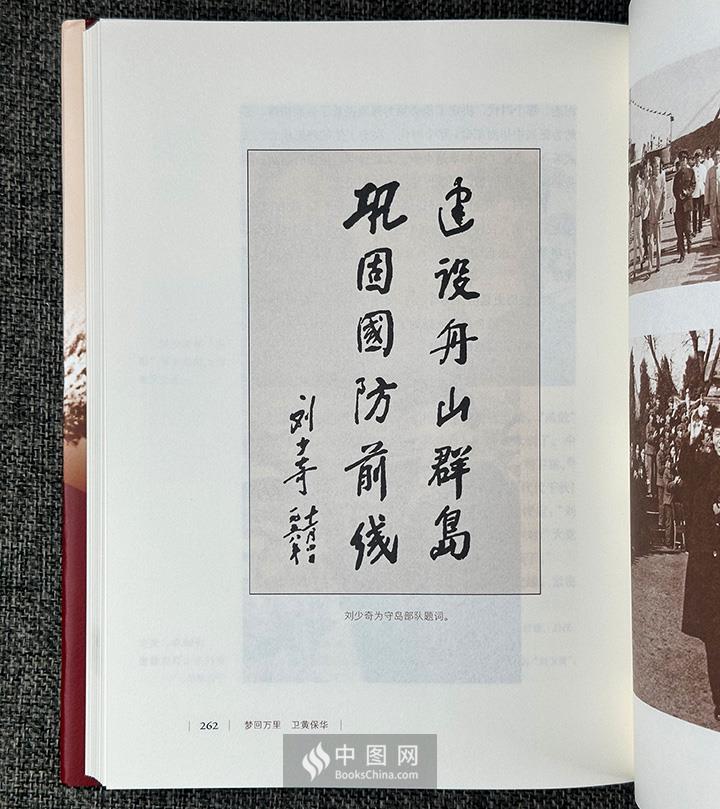 建设舟山群岛
巩固國防前线
刘少奇
刘少奇为守岛部队题词。
262 梦回万里 卫黄保华
中图网
BooksChina.com